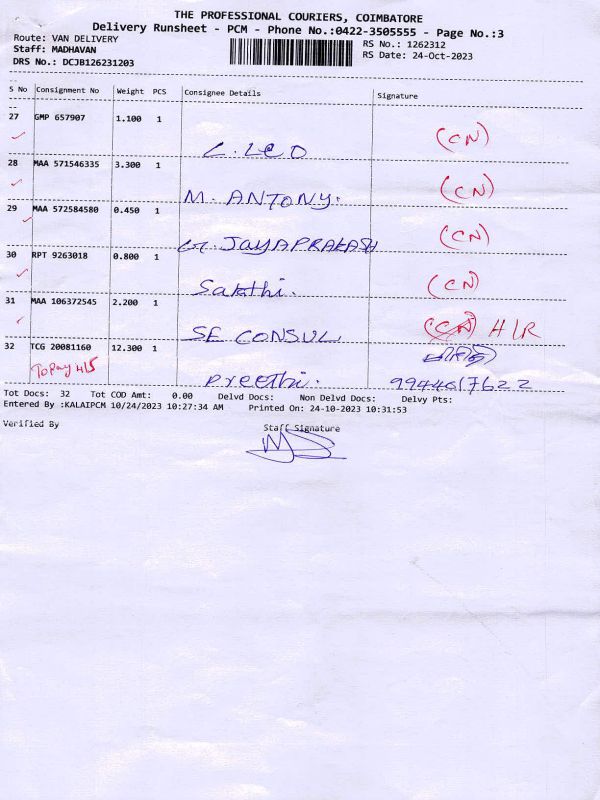 THE PROFESSIONAL COURIERS, COIMBATORE
Delivery Runsheet - PCM - Phone No.:0422-3505555 - Page No.:3
Route: VAN DELIVERY RS No.: 1262312
Staff: MADHAVAN RS Date: 24-Oct-2023
DRS No.: DCJB126231203
S No Consignment No Weight PCS Consignee Details Signature
27 GMP 657907 1.100 1
C. Leo (CN)
28 MAA 571546335 3.300 1
M. ANTONY. (CN)
29 MAA 572584580 0.450 1
JayAPRAKASH (CN)
30 RPT 9263018 0.800 1
Sakthi. (CN)
31 MAA 106372545 2.200 1
SE CONSUL (CN) H/R
32 TCG 20081160 12.300 1
ToPay
Preethi. 9944617622
Tot Docs: 32 Tot COD Amt: 0.00 Delvd Docs: Non Delvd Docs: Delvy Pts:
Entered By :KALAIPCM 10/24/2023 10:27:34 AM Printed On: 24-10-2023 10:31:53
Verified By Staff Signature